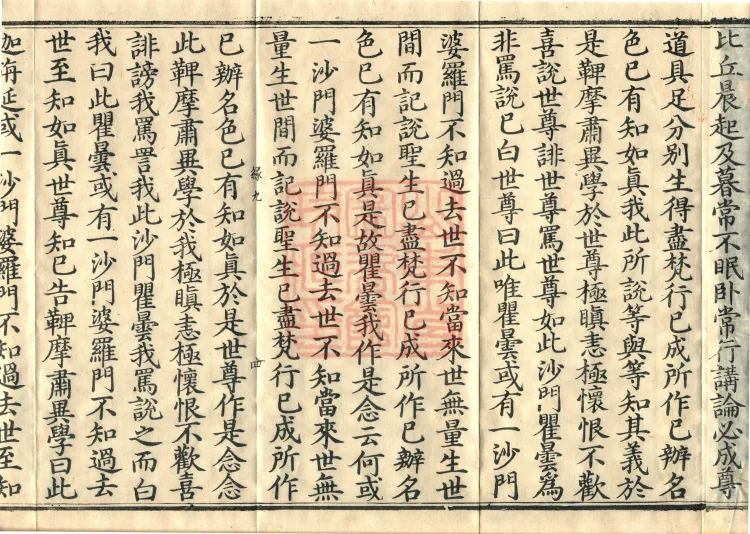 比丘晨起及暮常不眠卧常行講論必成尊
道具足分別生得盡梵行已成所作已辦名
色已有知如眞我此所說等與等知其義於
是鞞摩肅異學於世尊極瞋恚極懷恨不歡
喜說世尊誹世尊罵世尊如此沙門瞿曇爲
非罵說已白世尊曰此唯瞿曇或有一沙門
婆羅門不知過去世不知當來世無量生世
間而記說聖生已盡梵行已成所作已辦名
色已有知如眞是故瞿曇我作是念云何或
一沙門婆羅門不知過去世不知當來世無
量生世間而記說聖生已盡梵行已成所作
九 四
已辦名色已有知如眞於是世尊作是念念
此鞞摩肅異學於我極瞋恚極懷恨不歡喜
誹謗我罵詈我此沙門瞿曇我罵說之而白
我曰此瞿曇或有一沙門婆羅門不知過去
世至知如眞世尊知已告鞞摩肅異學曰此
迦海延或一沙門婆羅門不知過去世至知